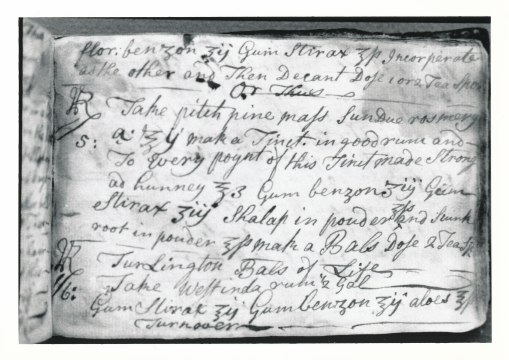 flor: benzon ʒij Gum Stirax ʒß Incorperate
as the other and Then Decant Dose 1 or 2 Tea Spo
Or Thus
℞ Take pitch pine mass Sundue rosmery
5: a: ʒij make a Tinct. in good rum and
To Every poynt of this Tinct made Strong
ad hunney ℥3 Gum benzon ʒiij Gum
Stirax ʒiij Shalap in pouder ʒß and Skunk
root in pouder ʒß make a Bals Dose 2 Teasp
℞ Turlington Bals of Life
16: Take Westinda rum ½ Gal
Gum Stirax ʒij Gum benzon ʒij aloes ʒß
Turnover